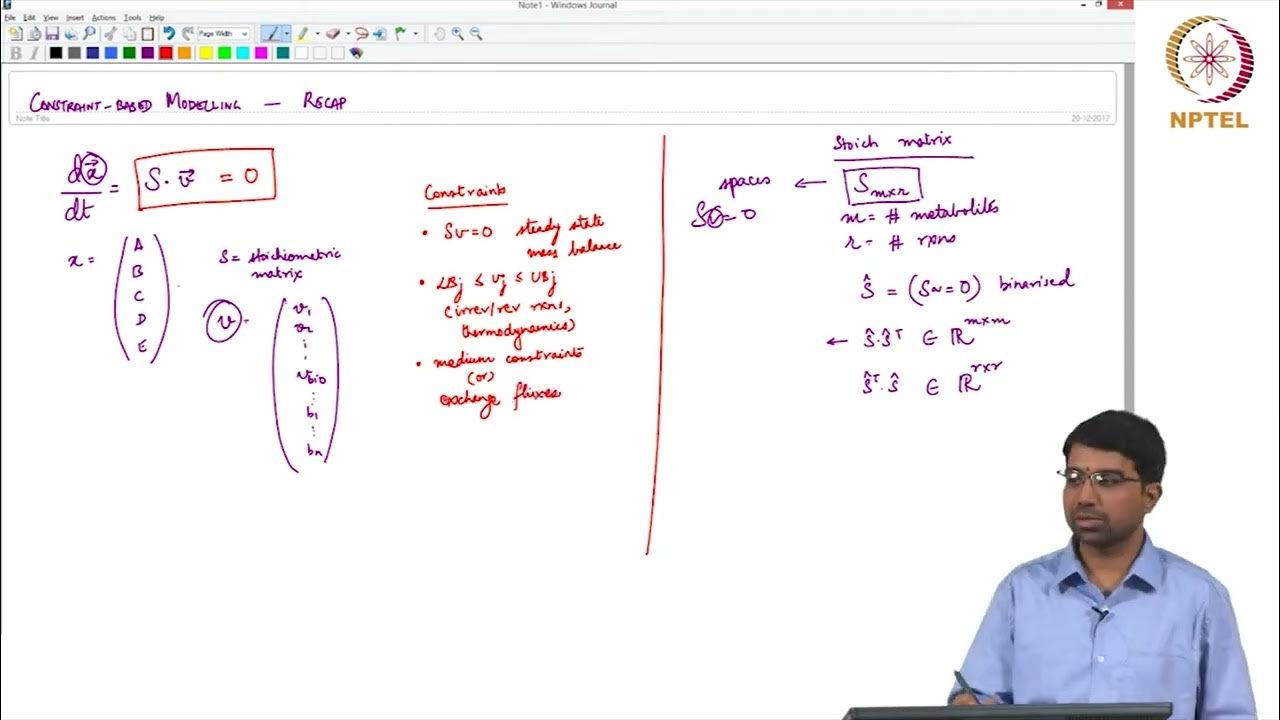 Note1 - Windows Journal
File Edit View Insert Actions Tools Help
Page Width
B I
CONSTRAINT-BASED MODELLING — RECAP
Note Title
20-12-2017
NPTEL
dx⃗/dt = S·v⃗ = 0
x = (A
B
C
D
E)
S = stoichiometric
matrix
v = (v₁
v₂
⋮
v_bio
⋮
b₁
⋮
bₙ)
Constraints
• Sv=0 steady state
mass balance
• LBj ≤ vj ≤ UBj
(irrev/rev rxns,
thermodynamics)
• medium constraints
(or)
exchange fluxes
Stoich matrix
spaces ← S_m×r
Sv=0
m = # metabolites
r = # rxns
Ŝ = (S~=0) binarised
← Ŝ·Ŝᵀ ∈ ℝ^m×m
Ŝᵀ·Ŝ ∈ ℝ^r×r